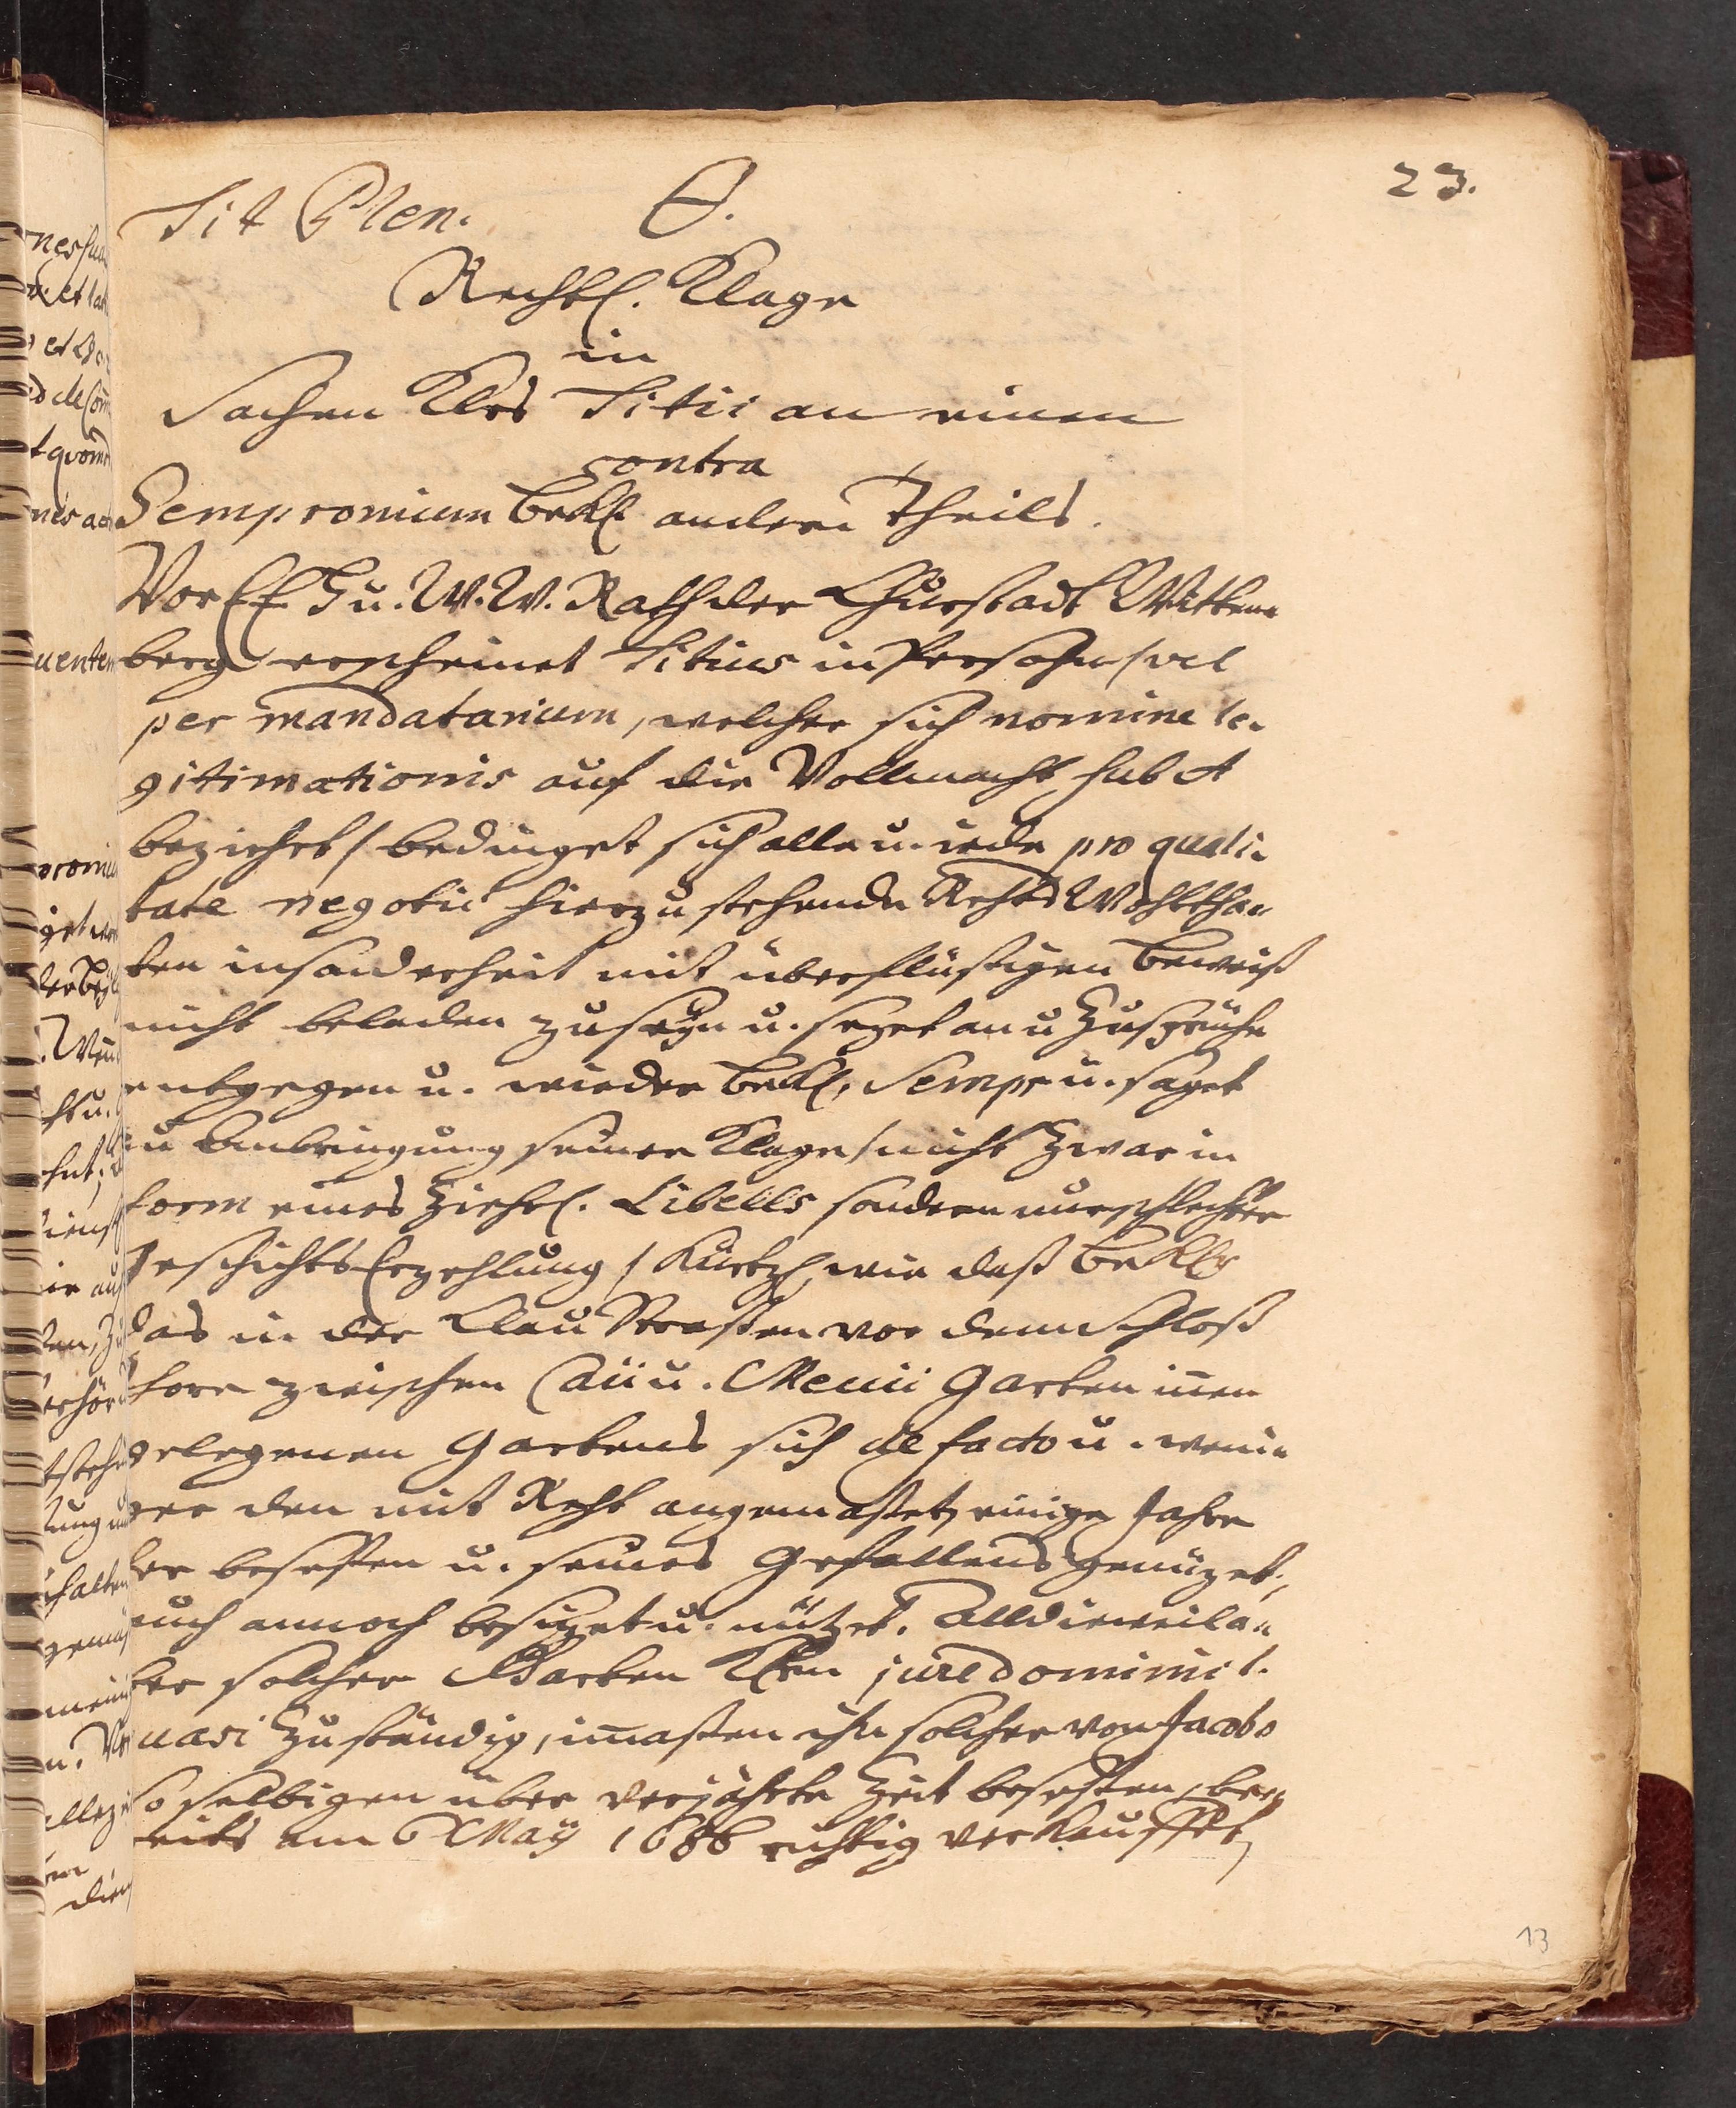 23.
Tit Plen. O.
Rechtl. Klage
in
Sachen Klrs Titii an einen
contra
Sempronium Bekl. andern Theils.
Vor E. E. H u. W. W. Rath der Churstadt Witten-
berg erscheinet Titius in Persohn /vel
per mandatarium, welcher sich nomine le-
gitimationis auf die Vollmacht sub A
beziehet/ bedinget sich alle u. iede pro quali-
tate negotii hierzu stehende Rechts Wohltha-
ten insonderheit mit überflüßigen Beweiß
nicht beladen zu seyn u. sezet an u Zusprüche
entgegen u. wieder Bekl. Sempr u. saget
zu Anbringung seiner Klage /nicht zwar in
form eines Ziehrl. Libells sondern nur schlechter
Geschichts Erzehlung / kürtzl. wie daß Bekler
das in der Klau Straßen vor dem Schloß
thore zwischen Caii u. Mevii Garten innen
gelegenen Gartens sich de facto u. weni-
ger den mit Recht angemaßet, einige Jahre
her beseßen u. seines Gefallens genüzet,
auch annoch besizet u. nützet. Alldieweil a-
ber solcher Garten Klrn jure dominii l.
quasi zuständig, immaßen ihn solcher von Jacobo
so selbigen über verjährte Zeit beseßen, be-
reits am 6 Maÿ 1686 richtig verkauffet,
13